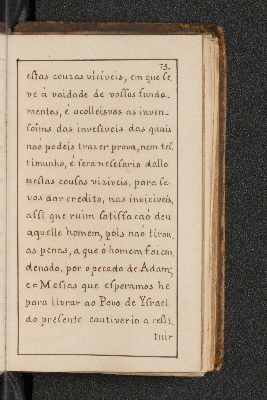 73.
estas couzas viciveis, em que se
ve á vaidade de vossos funda-
mentos, é acolleisvos as inven-
soins das invesiveis das quais
naõ podeis trazer prova, nem tes
timunho, é sera nesesario dallo
nestas cousas viziveis, para se
vos dar credito, nas inviciveis,
assi que ruim satisfacaõ deu
aquelle homem, pois naõ tirou
as penas, a que ó homem foi con
denado, por o pecado de Adam;
e o Mesias que esperamos he
para livrar ao Povo de Ysrael
do presente cautiverio a resti
tuir